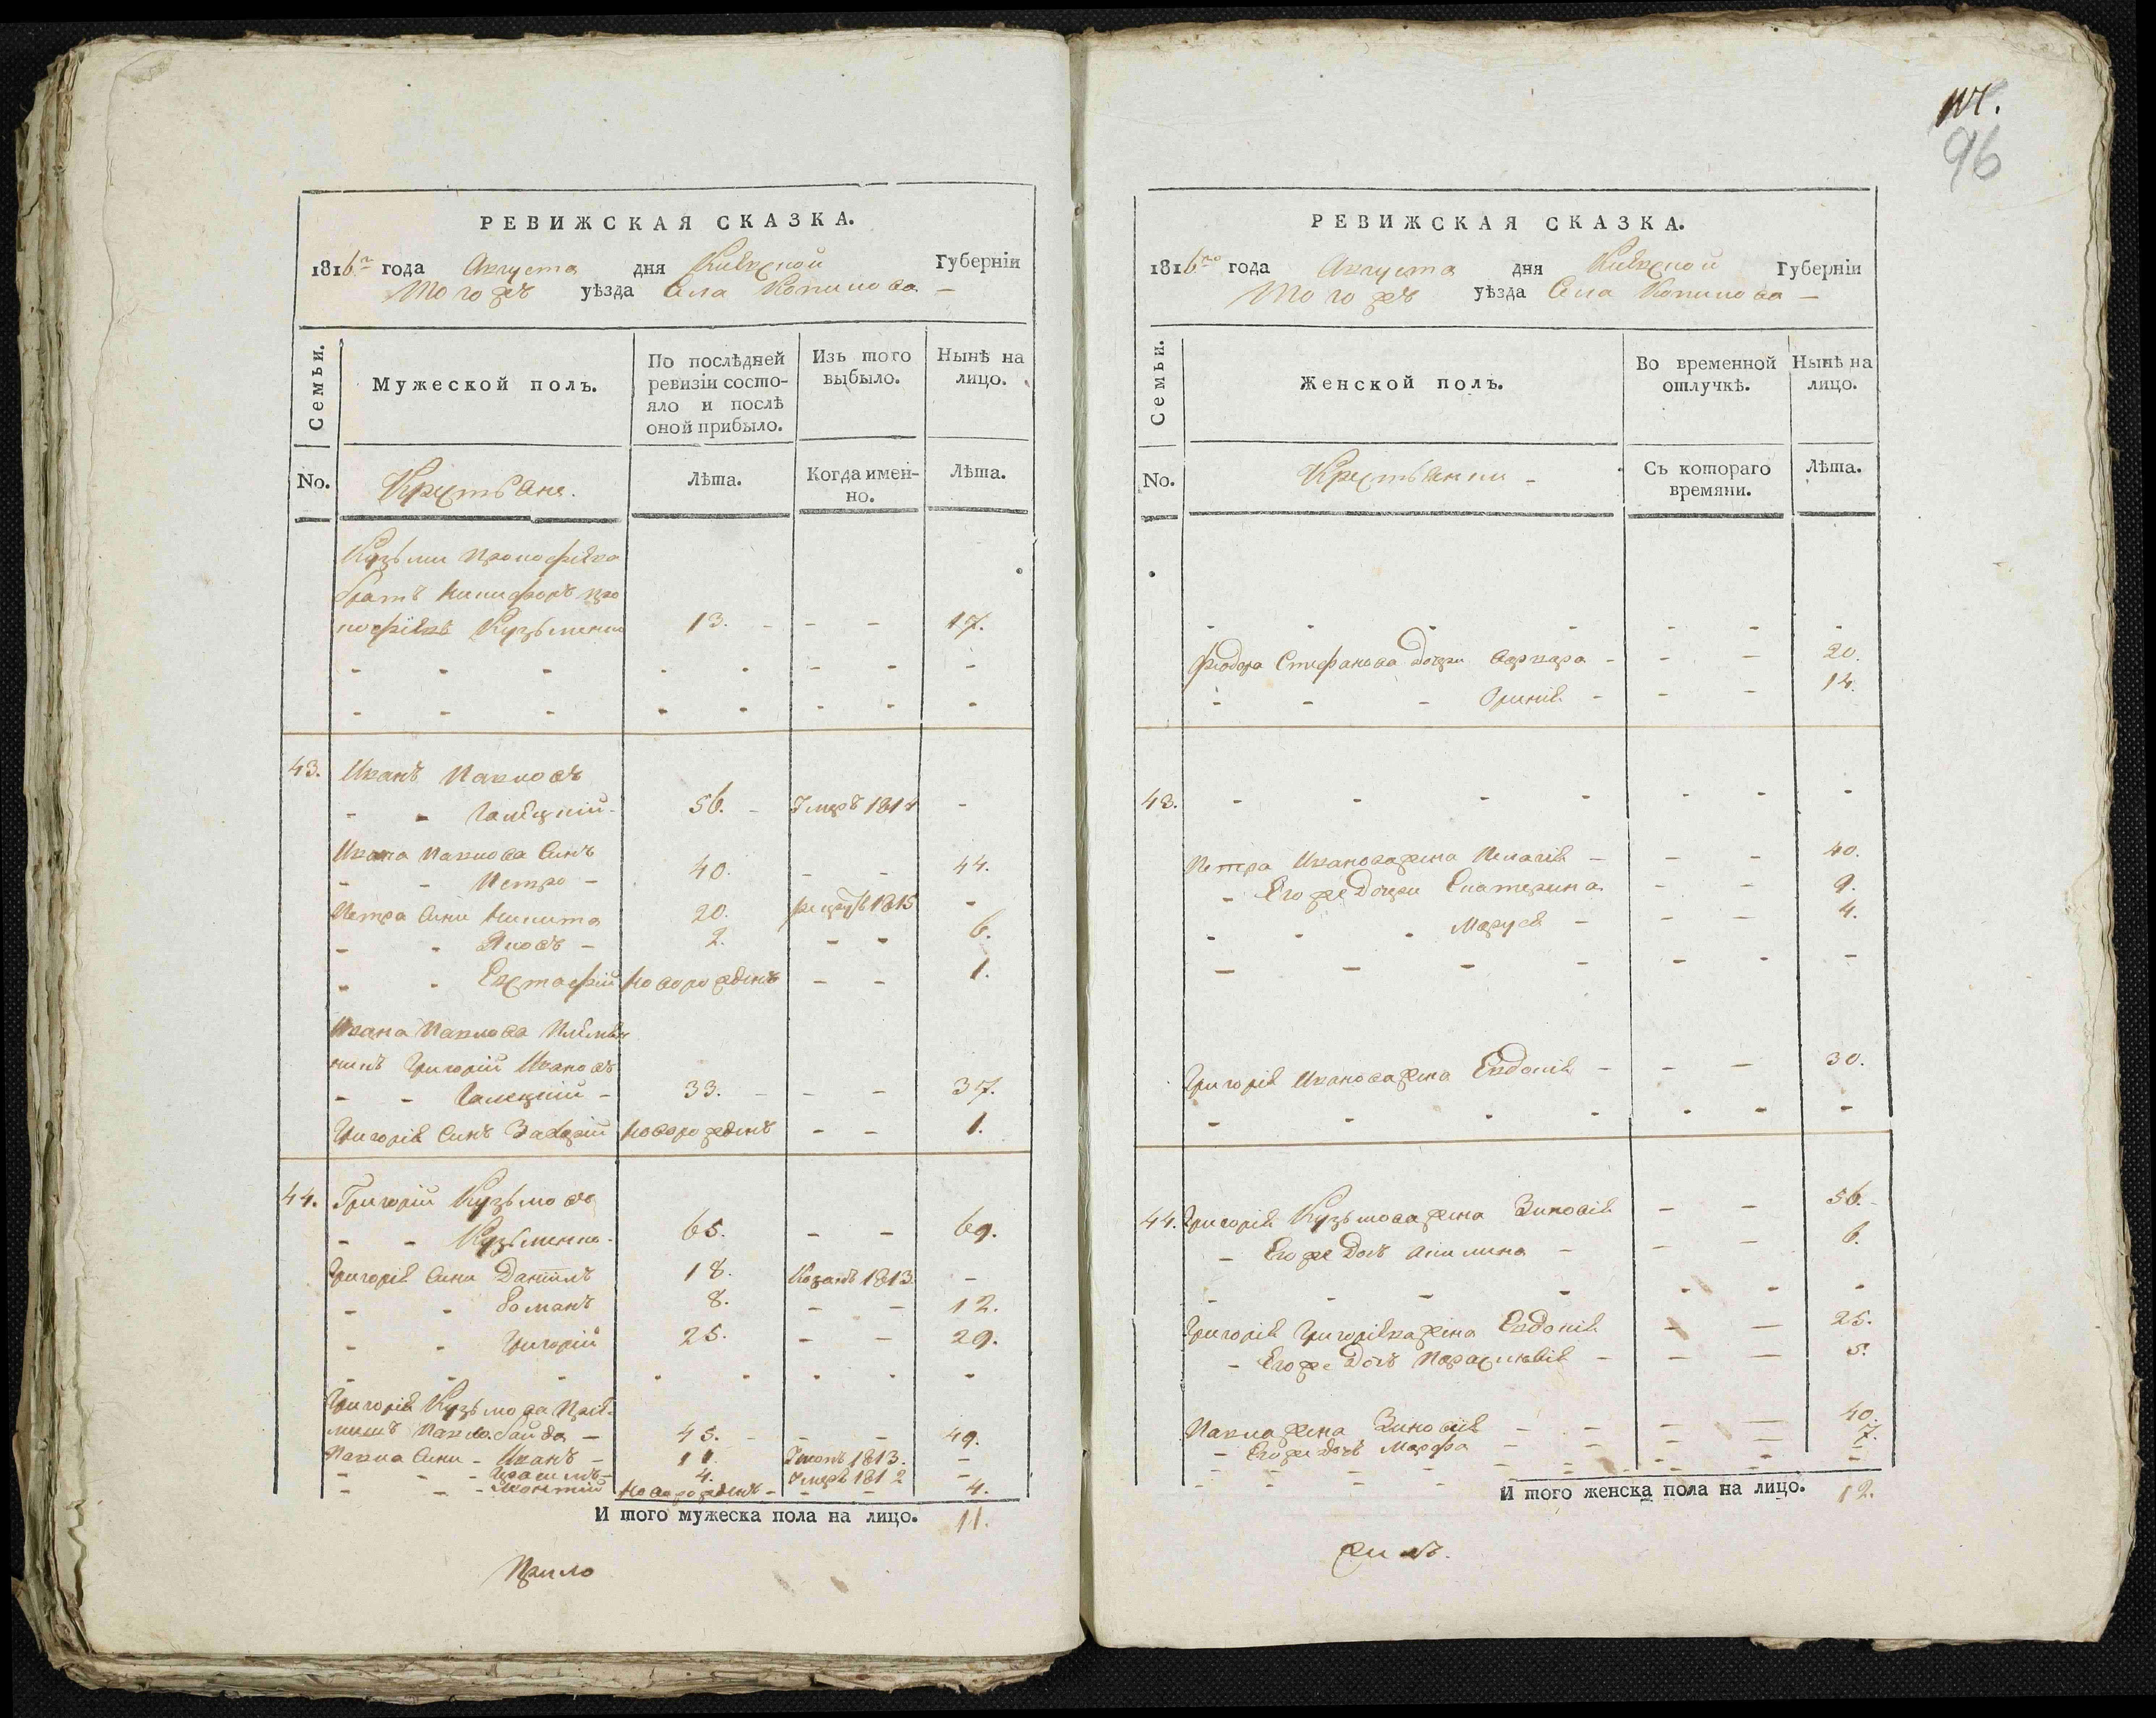 РЕВИЖСКАЯ СКАЗКА.
1816го года Августа дня Киевской Губерніи
Тогожъ уѣзда Села Копилова
Семьи.
Мужеской полъ.
По послѣдней ревизіи состояло и послѣ оной прибыло.
Изъ того выбыло.
Нынѣ на лицо.
No.
Крестьяне.
Лѣта.
Когда именно.
Лѣта.
Кузьми Прокофіева
братъ Никифоръ Про
кофіевъ Кузьменко 13. - - - 17.
43. Иванъ Павловъ
- - Галецкій - 56. - Умеръ 1814 -
Ивана Павлова Синъ
- - Петро - 40. - - 44.
Петра Сини Никита 20. рекрутъ 1815 -
- - Яковъ - 2. - - 6.
- - Евстафій новорожденъ - - 1.
Ивана Павлова Племян
никъ Григорій Ивановъ
- - Галецкій - 33. - - - 37.
Григорія Синъ Захарій новорожденъ - - 1.
44. Григорій Кузьмовъ
- - Кузьменко - 65. - - 69.
Григорія Сини Даніилъ 18. 1813 -
- - Романъ 8. - - 12.
- - Григорій 25. - - 29.
Григорія Кузьмова Прій-
мишъ Павло Сайда - 45. - - - 49.
Павла Сини - Иванъ - 11. 1813. -
- - - Герасимъ - 4. Умеръ 1812 -
- - - Леонтій новорожденъ - - - 4.
И того мужеска пола на лицо. 11.
96
РЕВИЖСКАЯ СКАЗКА.
1816го года Августа дня Киевской Губерніи
Тогожъ уѣзда Села Копилова -
Семьи.
Женской полъ.
Во временной отлучкѣ.
Нынѣ на лицо.
No.
Крестьянки -
Съ котораго времяни.
Лѣта.
Федора Стефанова дочери Варвара - - - 20.
- - - Оринія - - - 14.
43. - - - - - - -
Петра Иванова жена Пелагія - - - 40.
- Его же дочери Екатерина - - 9.
- - - Маруся - - - 4.
Григорія Иванова жена Евдокія - - - 30.
44. Григорія Кузьмова жена Зиновія - - 56.
- Его же дочь Акилина - - - 6.
Григорія Григоріева жена Евдокія - - 25.
- Его же дочь Параскевія - - - 5.
Павла жена Зиновія - - - - 40.
- Его же дочь Марфа - - - - 7.
И того женска пола на лицо. 12.